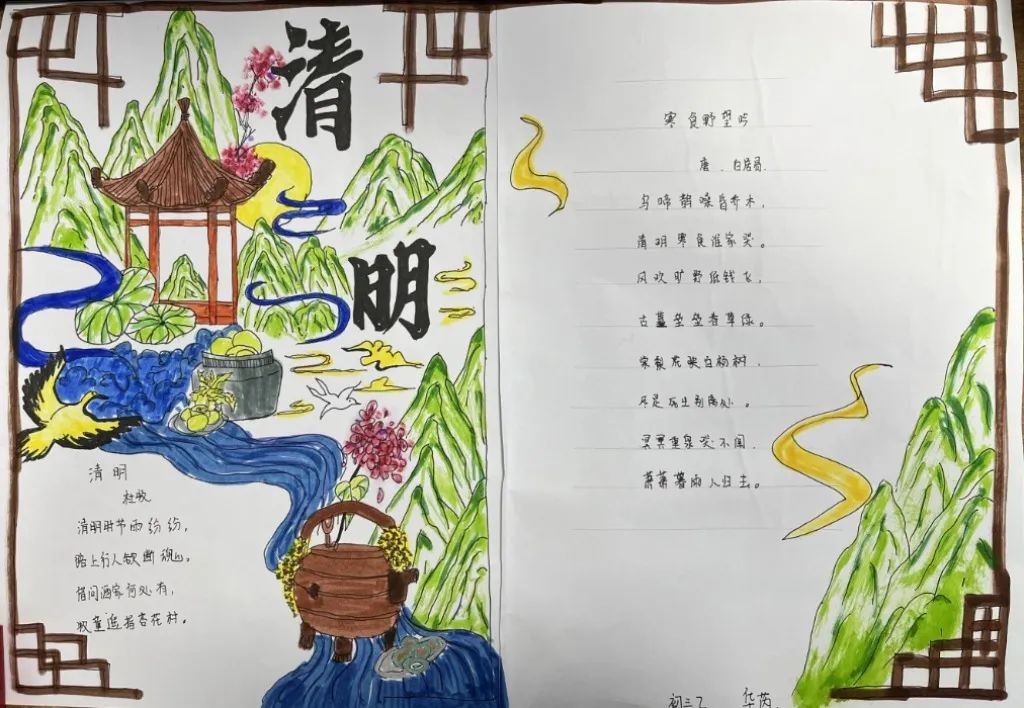 清明
清明
杜牧
清明时节雨纷纷,
路上行人欲断魂。
借问酒家何处有,
牧童遥指杏花村。
寒食野望吟
唐.白居易
乌啼鹊噪昏乔木,
清明寒食谁家哭。
风吹旷野纸钱飞,
古墓垒垒春草绿。
棠梨花映白杨树,
尽是死生别离处。
冥冥重泉哭不闻,
萧萧暮雨人归去。
初三乙 华芮